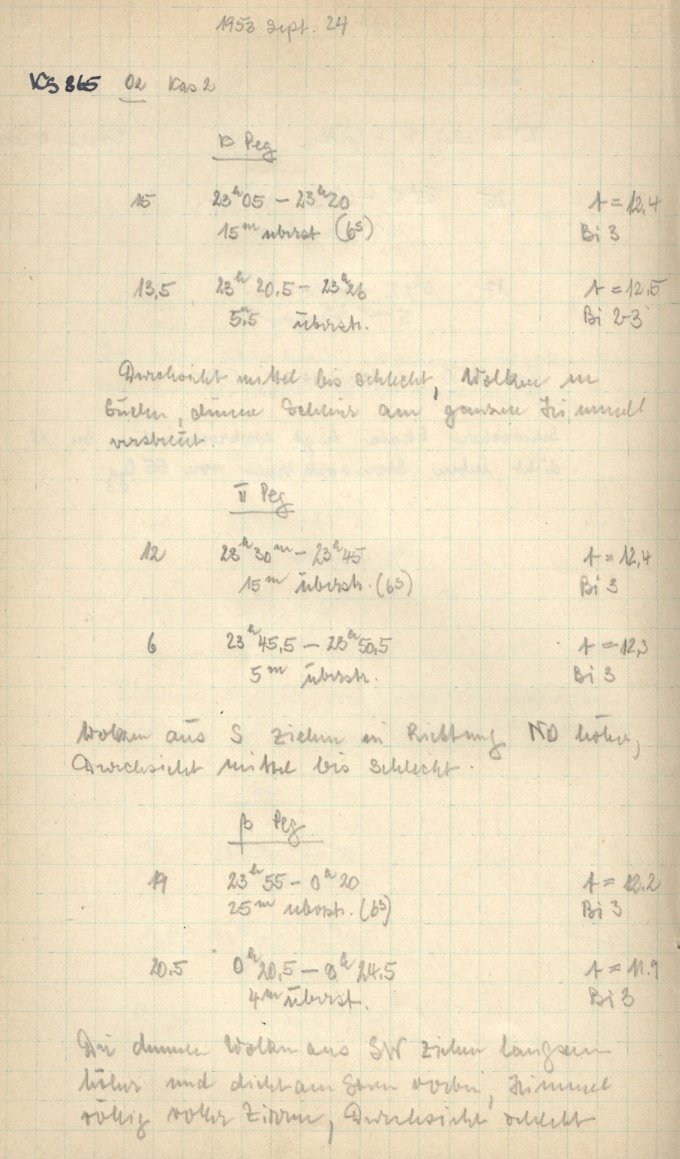 1953 Sept. 24
KS 865 O2 Kas 2
Peg
15 23h05 – 23h20 t = 12,4
15m überst (6s) Bi 3
13,5 23h 20.5 – 23h26 t = 12.5
5m.5 überstr. Bi 2-3
Durchsicht mittel bis schlecht, Wolken im
Süden, dünne Schleier am ganzen Himmel
verstreut
π Peg
12 23h30m – 23h45 t = 12,4
15m überstr. (6s) Bi 3
6 23h45,5 – 23h50,5 t = 12,3
5m überstr. Bi 3
Wolken aus S ziehen in Richtung NO höher,
Durchsicht mittel bis schlecht.
β Peg
19 23h55 – 0h20 t = 12.2
25m überstr. (6s) Bi 3
20.5 0h20,5 – 0h24.5 t = 11.9
4m überst. Bi 3
Die dünnen Wolken aus SW ziehen langsam
höher und dicht am Stern vorbei, Himmel
völlig voller Zirren, Durchsicht schlecht